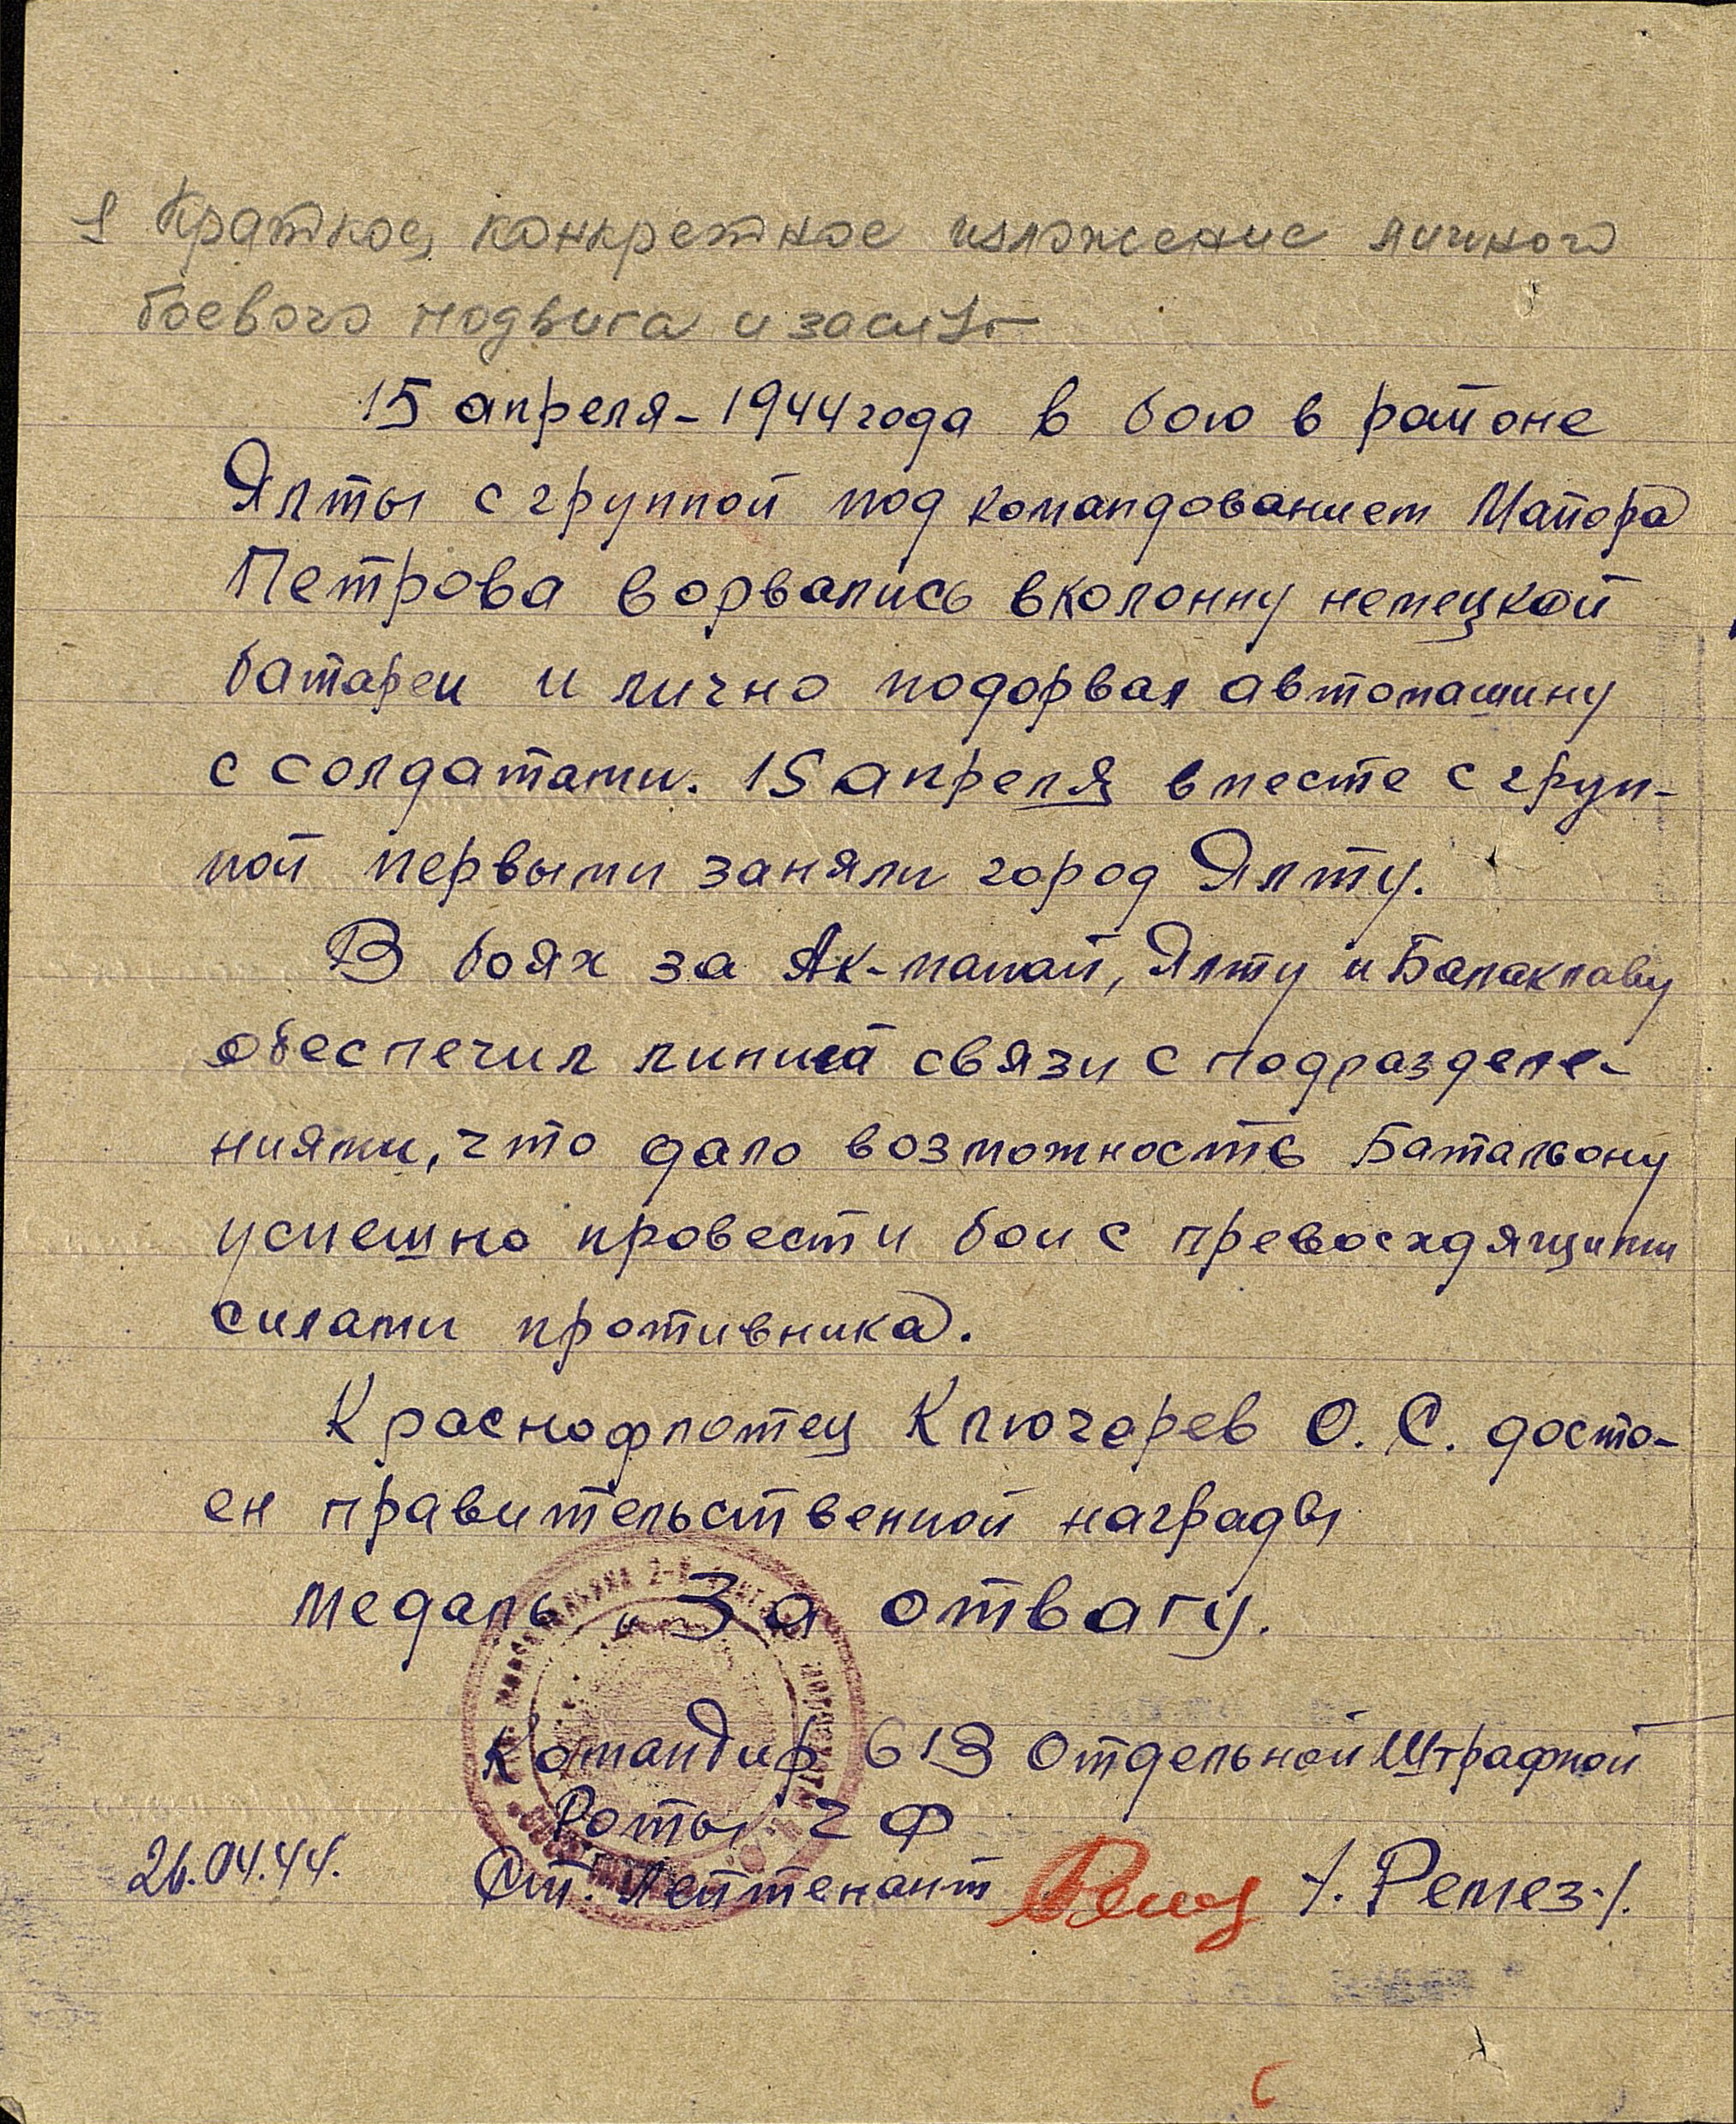 1 Краткое, конкретное изложение личного
боевого подвига и заслуг
15 апреля-1944 года в бою в районе
Ялты с группой под командованием Майора
Петрова ворвались вколонну немецкой
батареи и лично подорвал автомашину
с солдатами. 15 апреля вместе с груп-
пой первыми заняли город Ялту.
В боях за Ак-манай, Ялту и Балаклаву
обеспечил линией связи с подразделе-
ниями, что дало возможность Батальону
успешно провести бои с превосходящими
силами противника.
Краснофлотец Ключарев О. С. досто-
ен правительственной награды
медаль „За отвагу.
Командир 613 Отдельной Штрафной
Роты ЧФ
26.04.44. Ст. Лейтенант /. Ремез./.